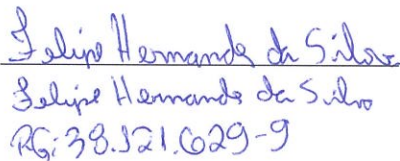 Felipe Hernandes da Silva
Felipe Hernandes da Silva
RG: 38.121.629-9